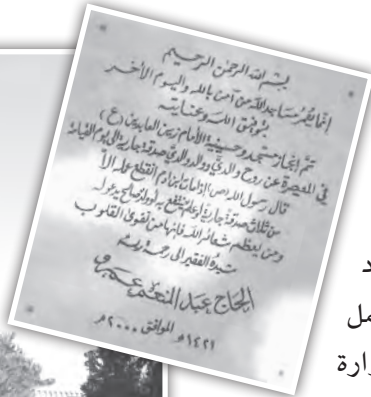 بسم الله الرحمن الرحيم
إنما يعمر مساجد الله من آمن بالله واليوم الآخر
بتوفيق الله وعنايته
تم إنجاز مسجد وحسينية الإمام زين العابدين (ع)
في المعيصرة عن روح والديّ ووالد والديّ صدقة جارية إلى يوم القيامة
قال رسول الله (ص) إذا مات ابن آدم انقطع عمله إلا
من ثلاث صدقة جارية أو علم ينتفع به أو ولد صالح يدعو له
ومن يعظم شعائر الله فإنها من تقوى القلوب
الفقير إلى رحمة ربه
الحاج عبد المنعم
١٤٢١ هـ الموافق ٢٠٠٠ م
د
مل
رارة